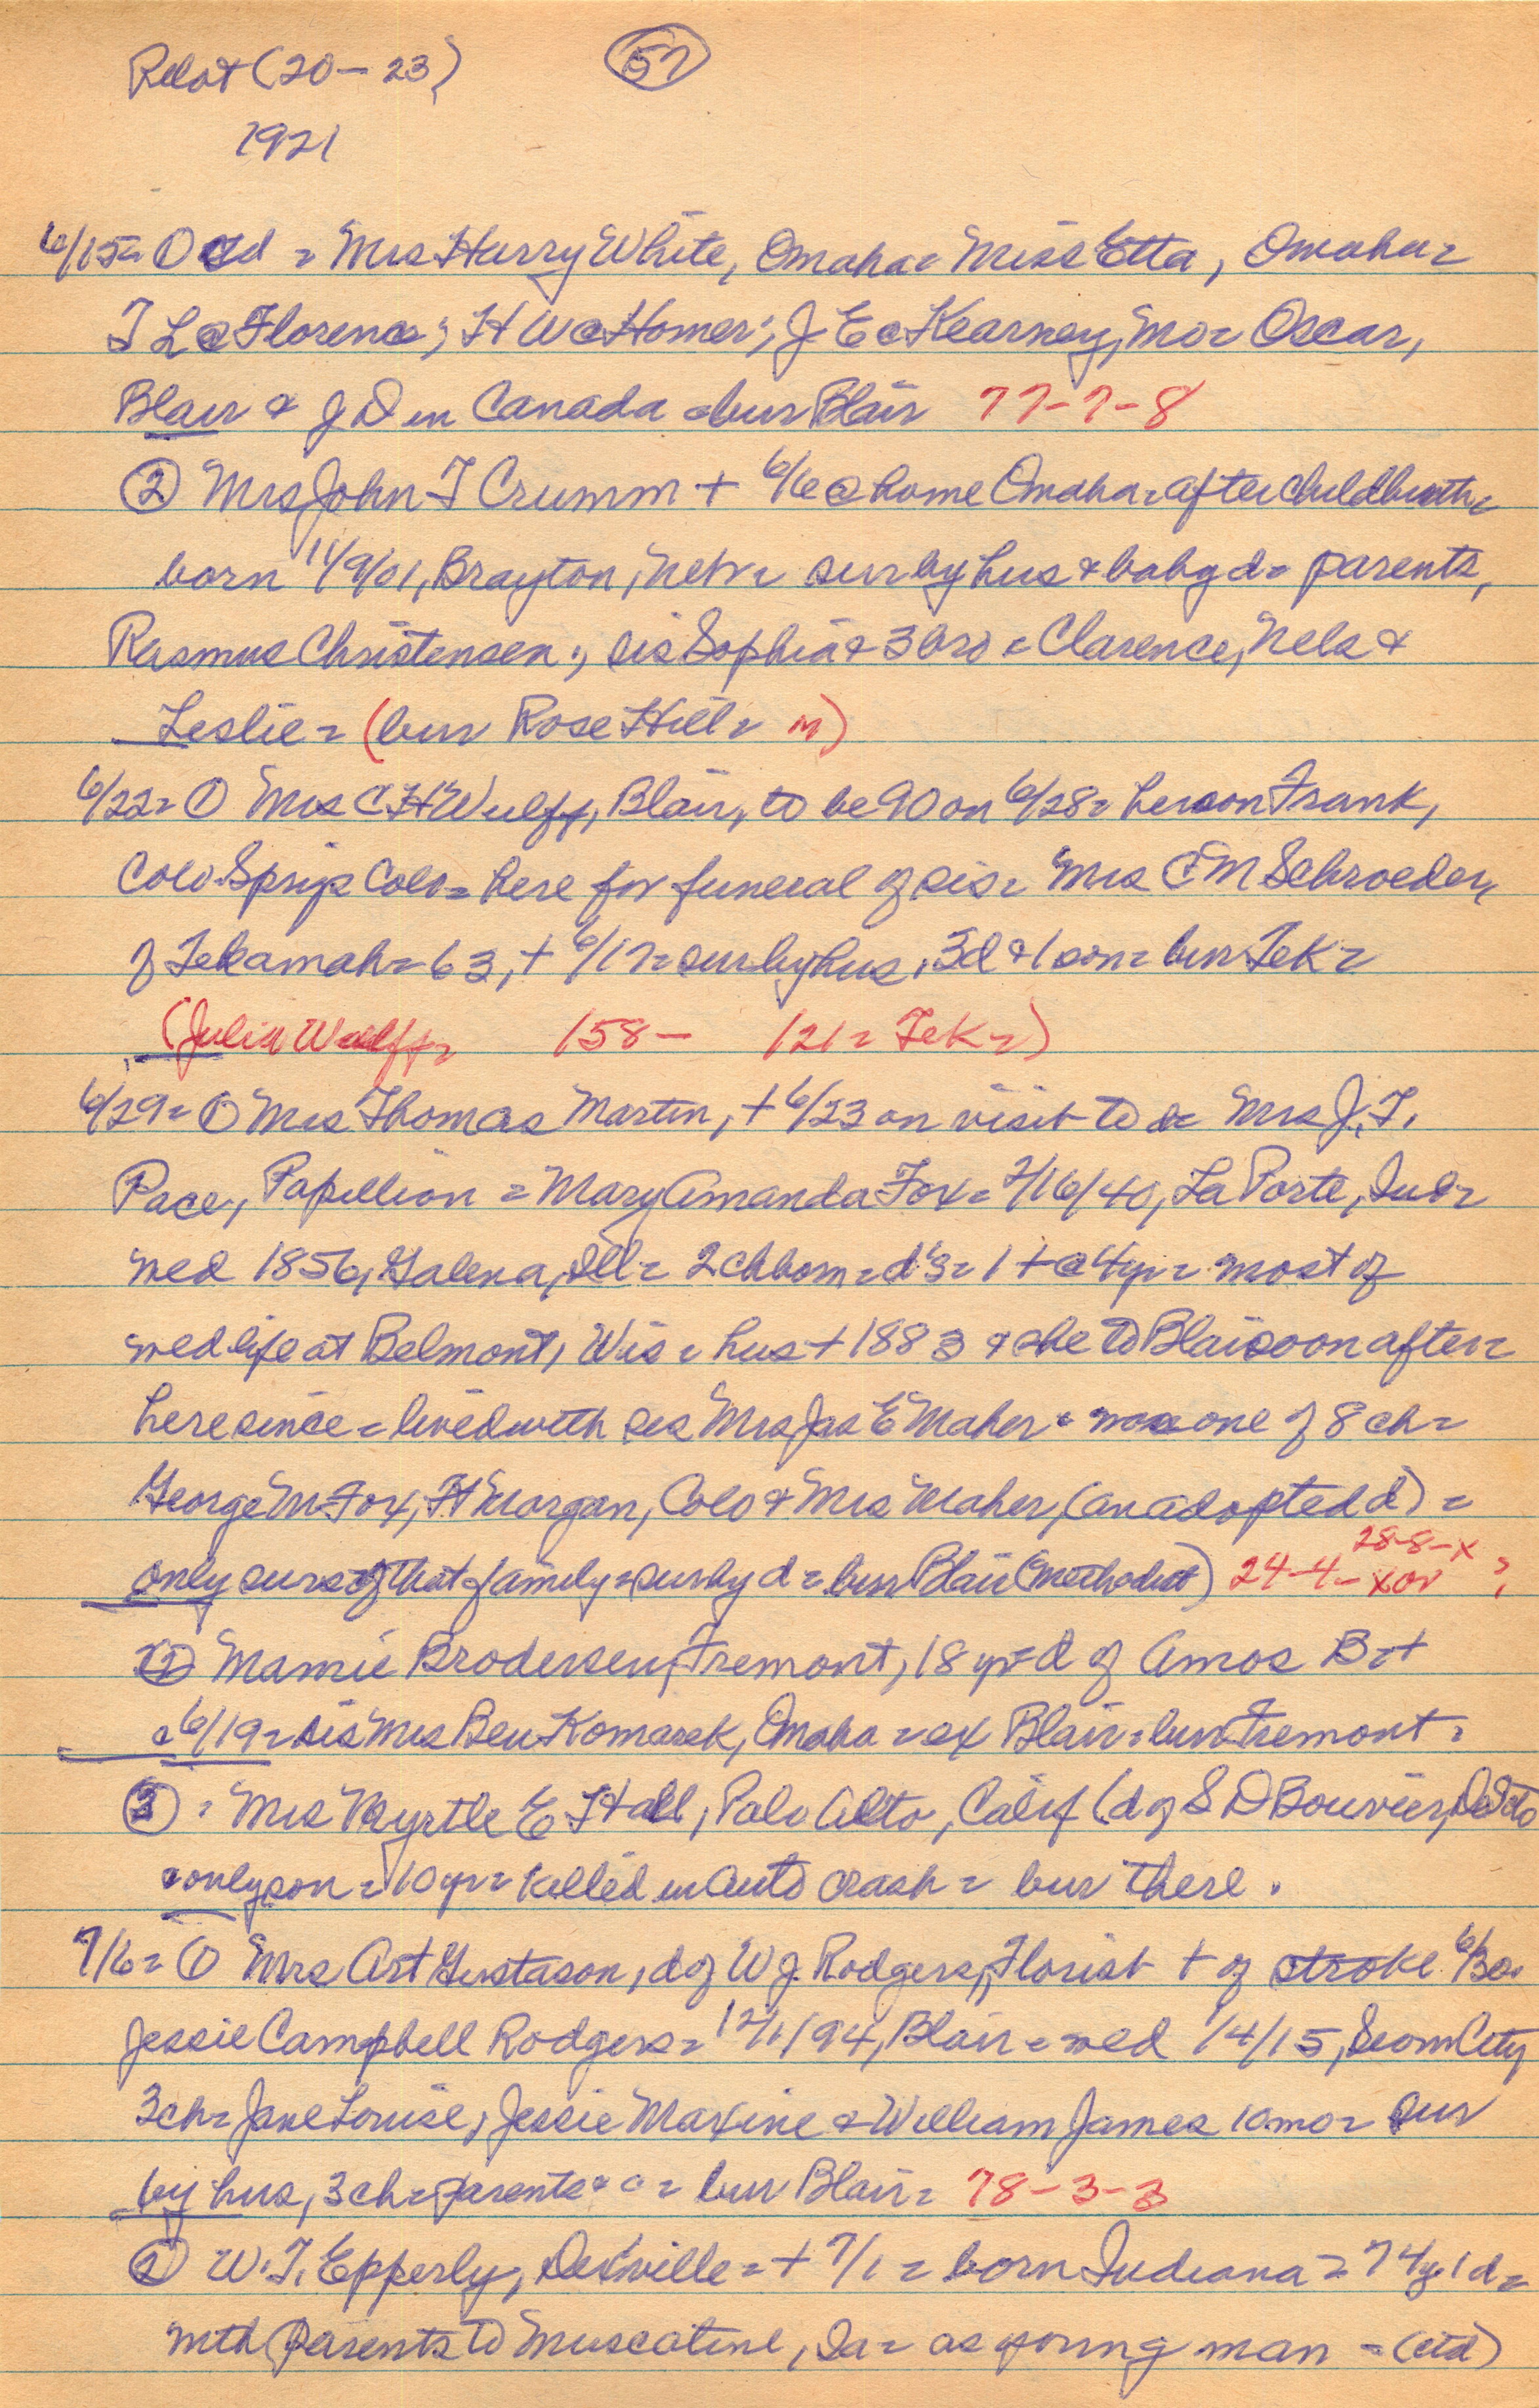 Pilot (20-23) 57
1921
6/15 = ① ctd = Mrs Harry White, Omaha = Miss Etta, Omaha =
T L @ Florence; H W @ Homer; J E @ Kearney, mo = Oscar,
Blair & J D in Canada = bur Blair 77-7-8
② Mrs John T Crumm + 6/6 @ home Omaha = after childbirth =
born 11/9/01, Brayton, Neb = sur by hus & baby d = parents,
Rasmus Christensen; sis Sophia & 3 bro = Clarence, Nels &
Leslie = (bur Rose Hill = m)
6/22 = ① Mrs C H Wulff, Blair, to be 90 on 6/28 = her son Frank,
Colo Sprgs Colo = here for funeral of sis = Mrs C M Schroeder,
of Tekamah = 63, + 6/17 = sur by hus, 3d & 1 son = bur Tek =
(Julia Wulff = 158- 121 = Tek =)
6/29 = ① Mrs Thomas Martin, + 6/23 on visit to d = Mrs J. T.
Pace, Papillion = Mary Amanda Fox = 2/16/40, La Porte, Ind =
wed 1856, Galena, Ill = 2 ch born = d's = 1 + @ 4 yr = most of
wed life at Belmont, Wis = hus + 1883 & she to Blair soon after =
here since = lived with sis Mrs Jas E Maher = was one of 8 ch =
George M Fox, Ft Morgan, Colo & Mrs Maher, (an adopted d) =
only survs of that family = sur by d = bur Blair (Methodist) 24-4-x or 28-8-x ?
② Mamie Brodersen, Fremont, 18 yr = d of Amos B = +
6/19 = sis Mrs Ben Komarek, Omaha = ex Blair = bur Fremont =
③ = Mrs Myrtle E Hall, Palo Alto, Calif (d of S D Bouvier, DeSoto
= only son = 10 yr = killed in auto crash = bur there.
7/6 = ① Mrs Art Gustason, d of W J. Rodgers, florist + of stroke 6/30.
Jessie Campbell Rodgers = 12/1/94, Blair = wed 1/4/15, City
3 ch = Jane Louise, Jessie Maxine & William James 10 mo = sur
by hus, 3 ch = parents & = bur Blair = 78-3-3
② W. T. Epperly, = + 7/1 = born Indiana = 74 y. 1 d =
with parents to Muscatine, Ia = as young man = (ctd)